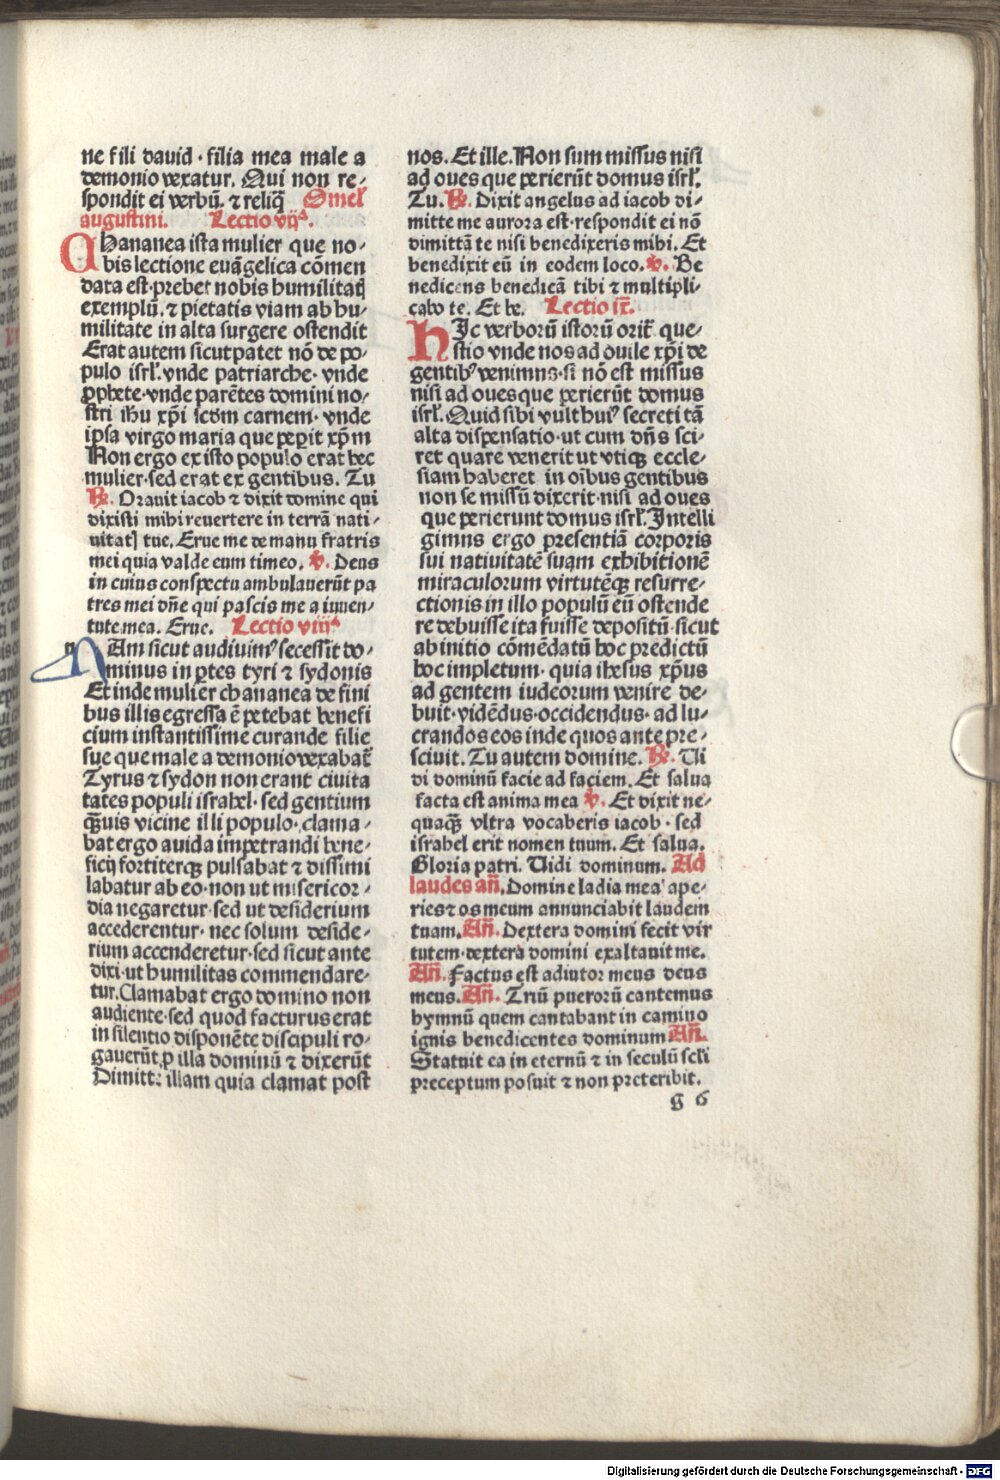 ne fili dauid · filia mea male a
demonio vexatur. Qui non re⸗
spondit ei verbū. ⁊ reliq̄ Omel᷑
augustini. Lectio vijᵃ.
Chananea ista mulier que no⸗
bis lectione euāgelica cōmen
data est·prebet nobis humilitatꝭ
exemplū. ⁊ pietatis viam ab hu⸗
militate in alta surgere ostendit
Erat autem sicut patet nō de po⸗
pulo isrl᷑. vnde patriarche · vnde
ꝓphete·vnde parētes domini no⸗
stri ihu xp̄i scd̄m carnem · vnde
ip̄a virgo maria que peꝑit xp̄m
Non ergo ex isto populo erat hec
mulier·sed erat ex gentibus. Tu
℞. Orauit iacob ⁊ dixit domine qui
dixisti mihi reuertere in terrā nati⸗
uitatꝭ tue. Erue me de manu fratris
mei quia valde eum timeo. ℣. Deus
in cuius conspectu ambulauerūt pa
tres mei dn̄e qui pascis me a iuuen⸗
tute mea. Erue. Lectio viijᵃ
n NAm sicut audiuimꝰ secessit do⸗
minus in ꝑtes tyri ⁊ sydonis
Et inde mulier chananea de fini
bus illis egressa ē petebat benefi
cium instantissime curande filie
sue que male a demonio vexabat᷑
Tyrus ⁊ sydon non erant ciuita
tates populi israhel· sed gentium
qͣ̄uis vicine illi populo·clama⸗
bat ergo auida impetrandi bene⸗
ficij fortiterqꝫ pulsabat ⁊ dissimi
labatur ab eo·non ut misericor⸗
dia negaretur·sed ut desiderium
accederentur· nec solum deside⸗
rium accenderetur·sed sicut ante
dixi·ut humilitas commendare⸗
tur. Clamabat ergo domino non
audiente·sed quod facturus erat
in silentio disponēte discipuli ro⸗
gauerūt ꝓ illa dominū ⁊ dixerūt
Dimitte illam quia clamat post
nos. Et ille. Non sum missus nisi
ad oues que perierūt domus isrl᷑.
Tu. ℞. Dixit angelus ad iacob di⸗
mitte me aurora est·respondit ei nō
dimittā te nisi benedixeris mihi. Et
benedixit eū in eodem loco. ℣. Be
nedicens benedicā tibi ⁊ multipli⸗
cabo te. Et be. Lectio ix̄.
HIc verborū istorū orit᷑ que⸗
stio vnde nos ad ouile xp̄i de
gentibꝰ venimꝰ·si nō est missus
nisi ad oues que perierūt domus
isrl᷑. Quid sibi vult huiꝰ secreti tā
alta dispensatio·ut cum dn̄s sci⸗
ret quare venerit ut vtiqꝫ eccle⸗
siam haberet in oībus gentibus
non se missū dixerit·nisi ad oues
que perierunt domus isrl᷑. Intelli
gimus ergo presentiā corporis
sui natiuitatē suam exhibitionē
miraculorum virtutēqꝫ resurre⸗
ctionis in illo populū eū ostende
re debuisse ita fuisse depositū·sicut
ab initio cōmēdatū hoc predictū
hoc impletum· quia ihesus xp̄us
ad gentem iudeorum venire de⸗
buit·vidēdus·occidendus· ad lu⸗
crandos eos inde quos ante pre⸗
sciuit. Tu autem domine. ℞. Ui
di dominū facie ad faciem. Et salua
facta est anima mea ℣. Et dixit ne⸗
quaqͣ̄ vltra vocaberis iacob · sed
israhel erit nomen tuum. Et salua.
Gloria patri. Uidi dominum. Ad
laudes an̄. Domine labia mea ape⸗
ries ⁊ os meum annunciabit laudem
tuam. An̄. Dextera domini fecit vir
tutem·dextera domini exaltauit me.
An̄. Factus est adiutor meus deus
meus. An̄. Triū puerorū cantemus
hymnū quem cantabant in camino
ignis benedicentes dominum An̄.
Statuit ea in eternū ⁊ in seculū scl᷑i
preceptum posuit ⁊ non preteribit.
g 6
Digitalisierung gefördert durch die Deutsche Forschungsgemeinschaft - DFG